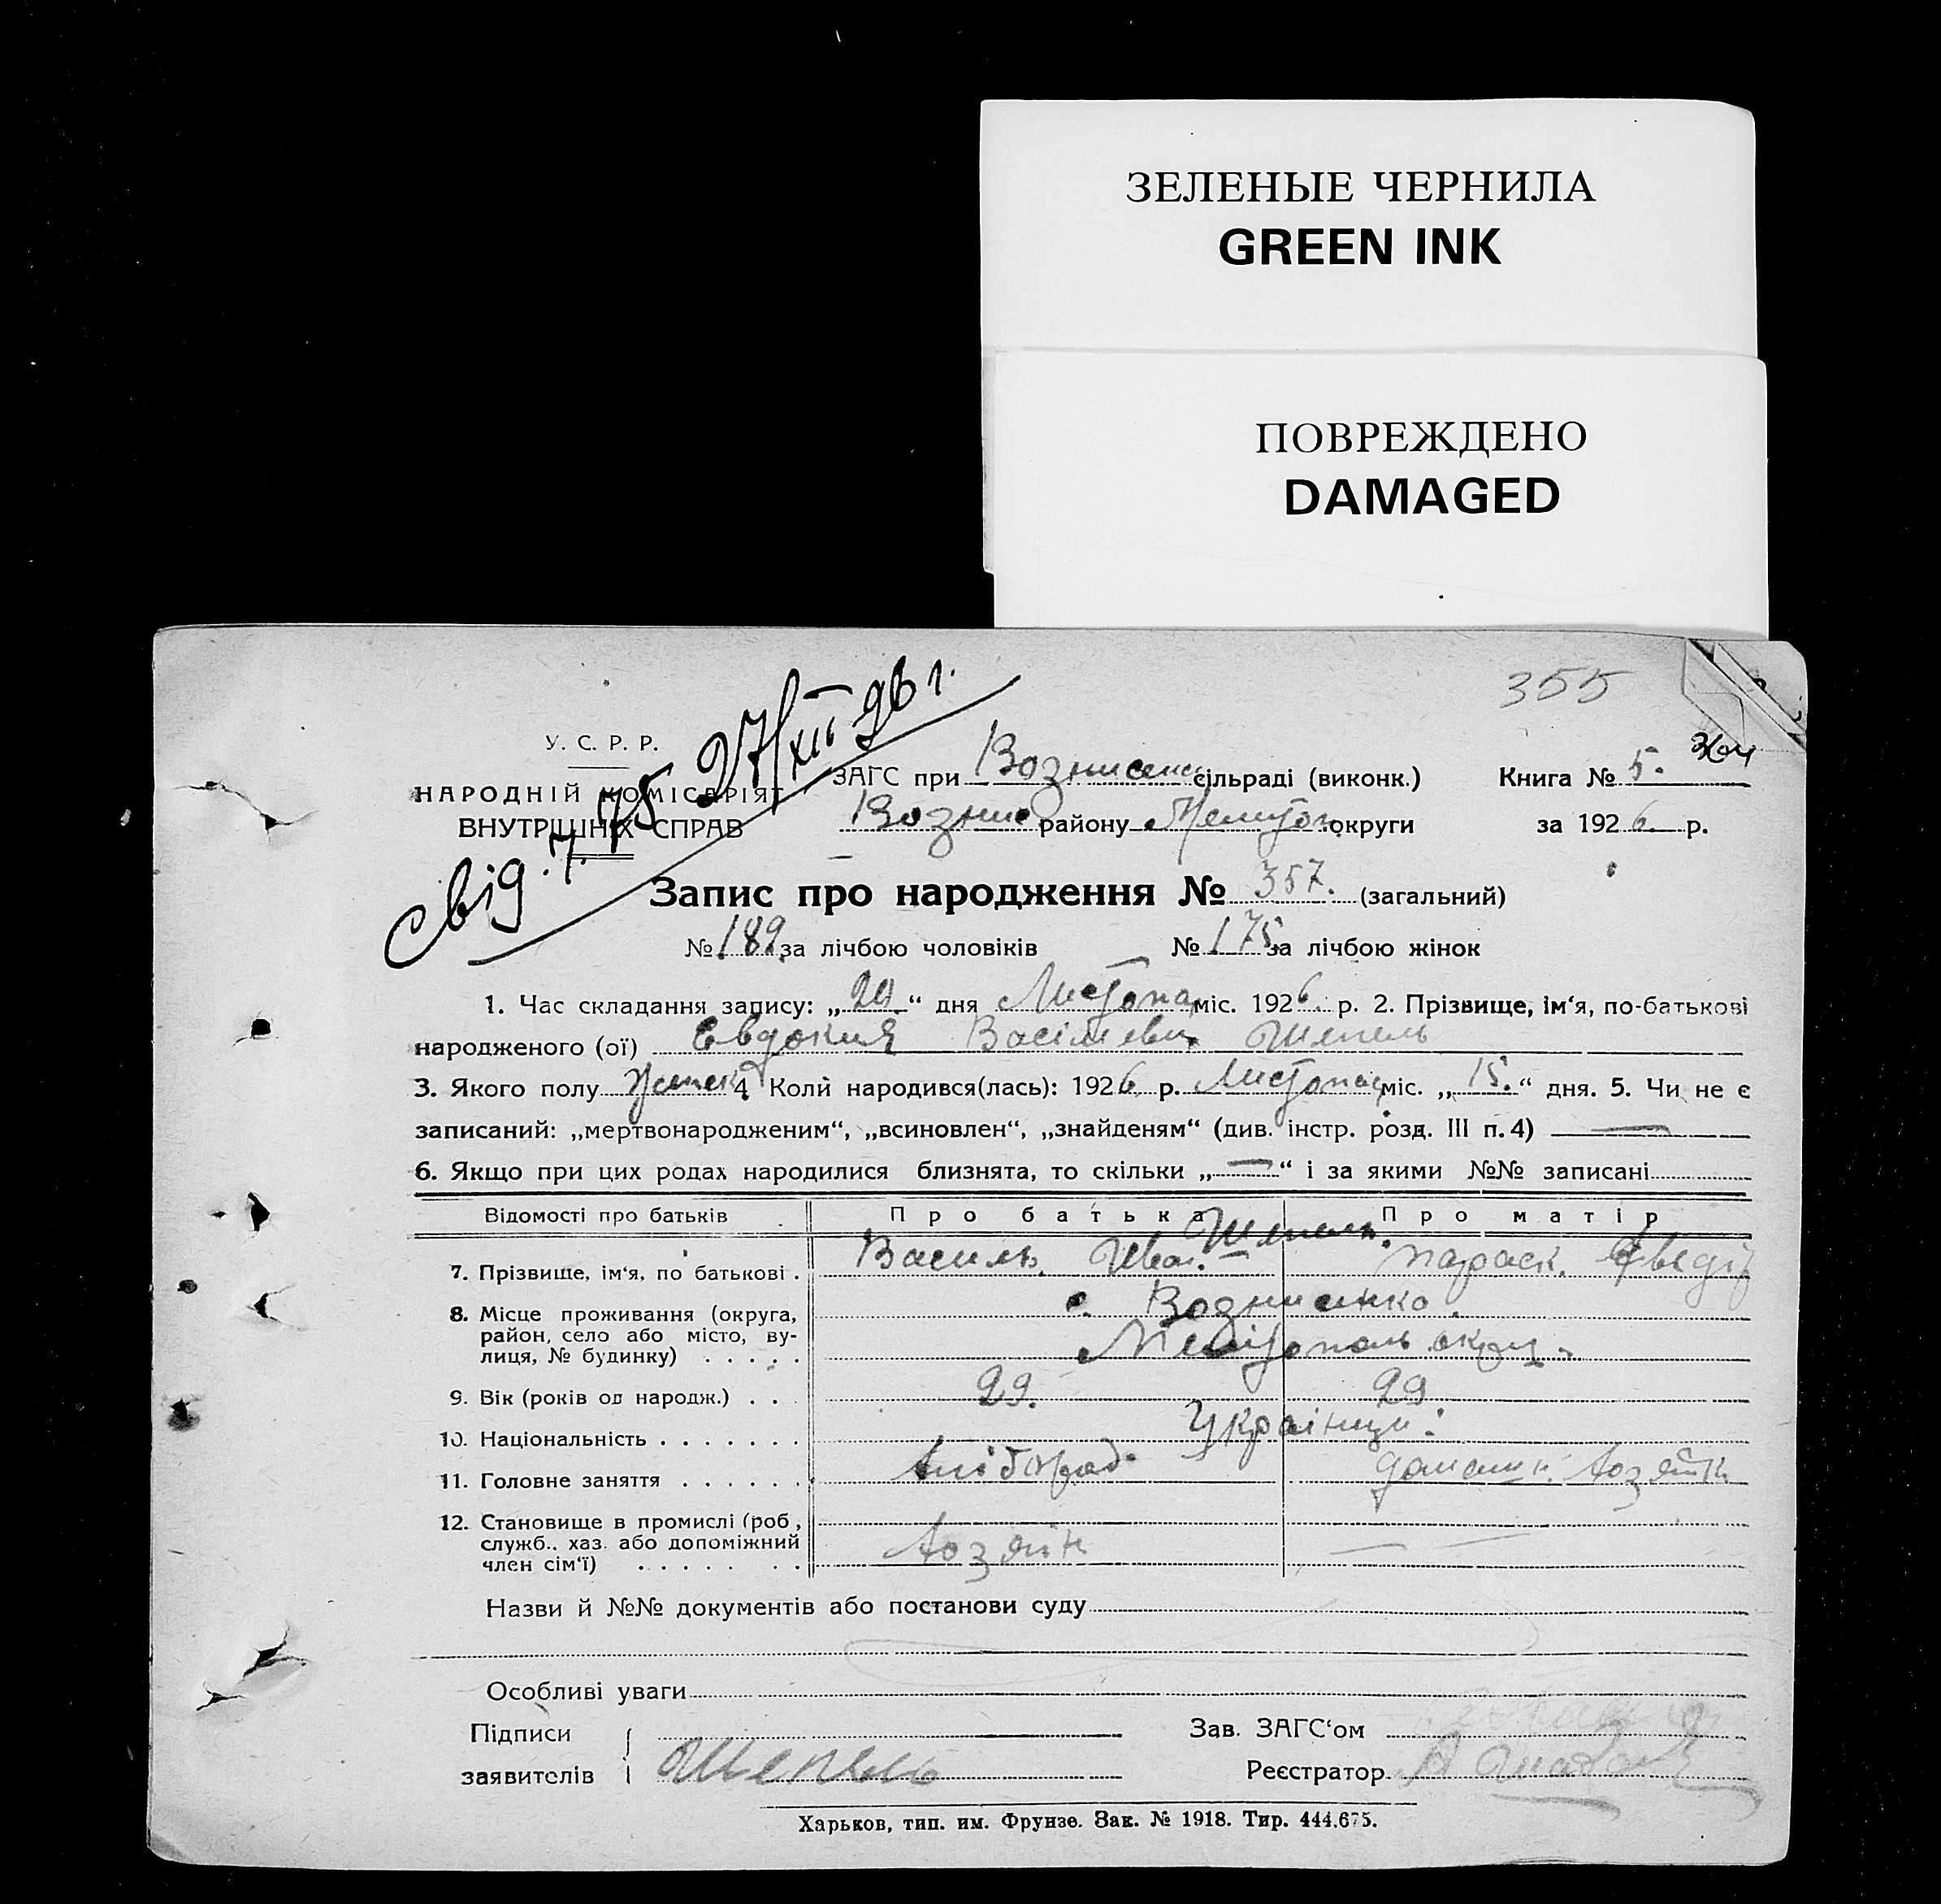 ЗЕЛЕНЫЕ ЧЕРНИЛА
GREEN INK
ПОВРЕЖДЕНО
DAMAGED
355
364
У. С. Р. Р.
НАРОДНІЙ КОМІСАРІЯТ
ВНУТРІШНІХ СПРАВ
27/XII 26 г.
ЗАГС при Вознисенс сільраді (виконк.) Книга № 5.
Возние району Мелитоп округи за 1926 р.
Запис про народження № 357. (загальний)
№ 189 за лічбою чоловіків № 175 за лічбою жінок
1. Час складання запису: „20“ дня Листопа міс. 1926 р. 2. Прізвище, ім‘я, по-батькові
народженого (ої) Евдокия Васілієвн Шепель
3. Якого полу женск 4. Коли народився(лась): 1926 р. Листопад міс. „15.“ дня. 5. Чи не є
записаний: „мертвонародженим“, „всиновлен“, „знайденям“ (див. інстр. розд. III п. 4) —
6. Якщо при цих родах народилися близнята, то скільки „—“ і за якими №№ записані
Відомості про батьків Про батька Про матір
Шепель.
7. Прізвище, ім‘я, по батькові . Василь Иван. — параск.
8. Місце проживання (округа, с. Вознисенка.
район, село або місто, ву-
лиця, № будинку) . . . . . Мелітополь округ.
9. Вік (років од народж.) . . . 29. 29
10. Національність . . . . . . . Українци:
11. Головне заняття . . . . . . хлібороб. домашн. хозяйк
12. Становище в промислі (роб.,
служб., хаз. або допоміжний
член сім‘ї) . . . . . . . хозяін — —
Назви й №№ документів або постанови суду
Особливі уваги
Підписи Зав. ЗАГС‘ом
заявителів Шепель Реєстратор
Харьков, тип. им. Фрунзе. Зак. № 1918. Тир. 444.675.